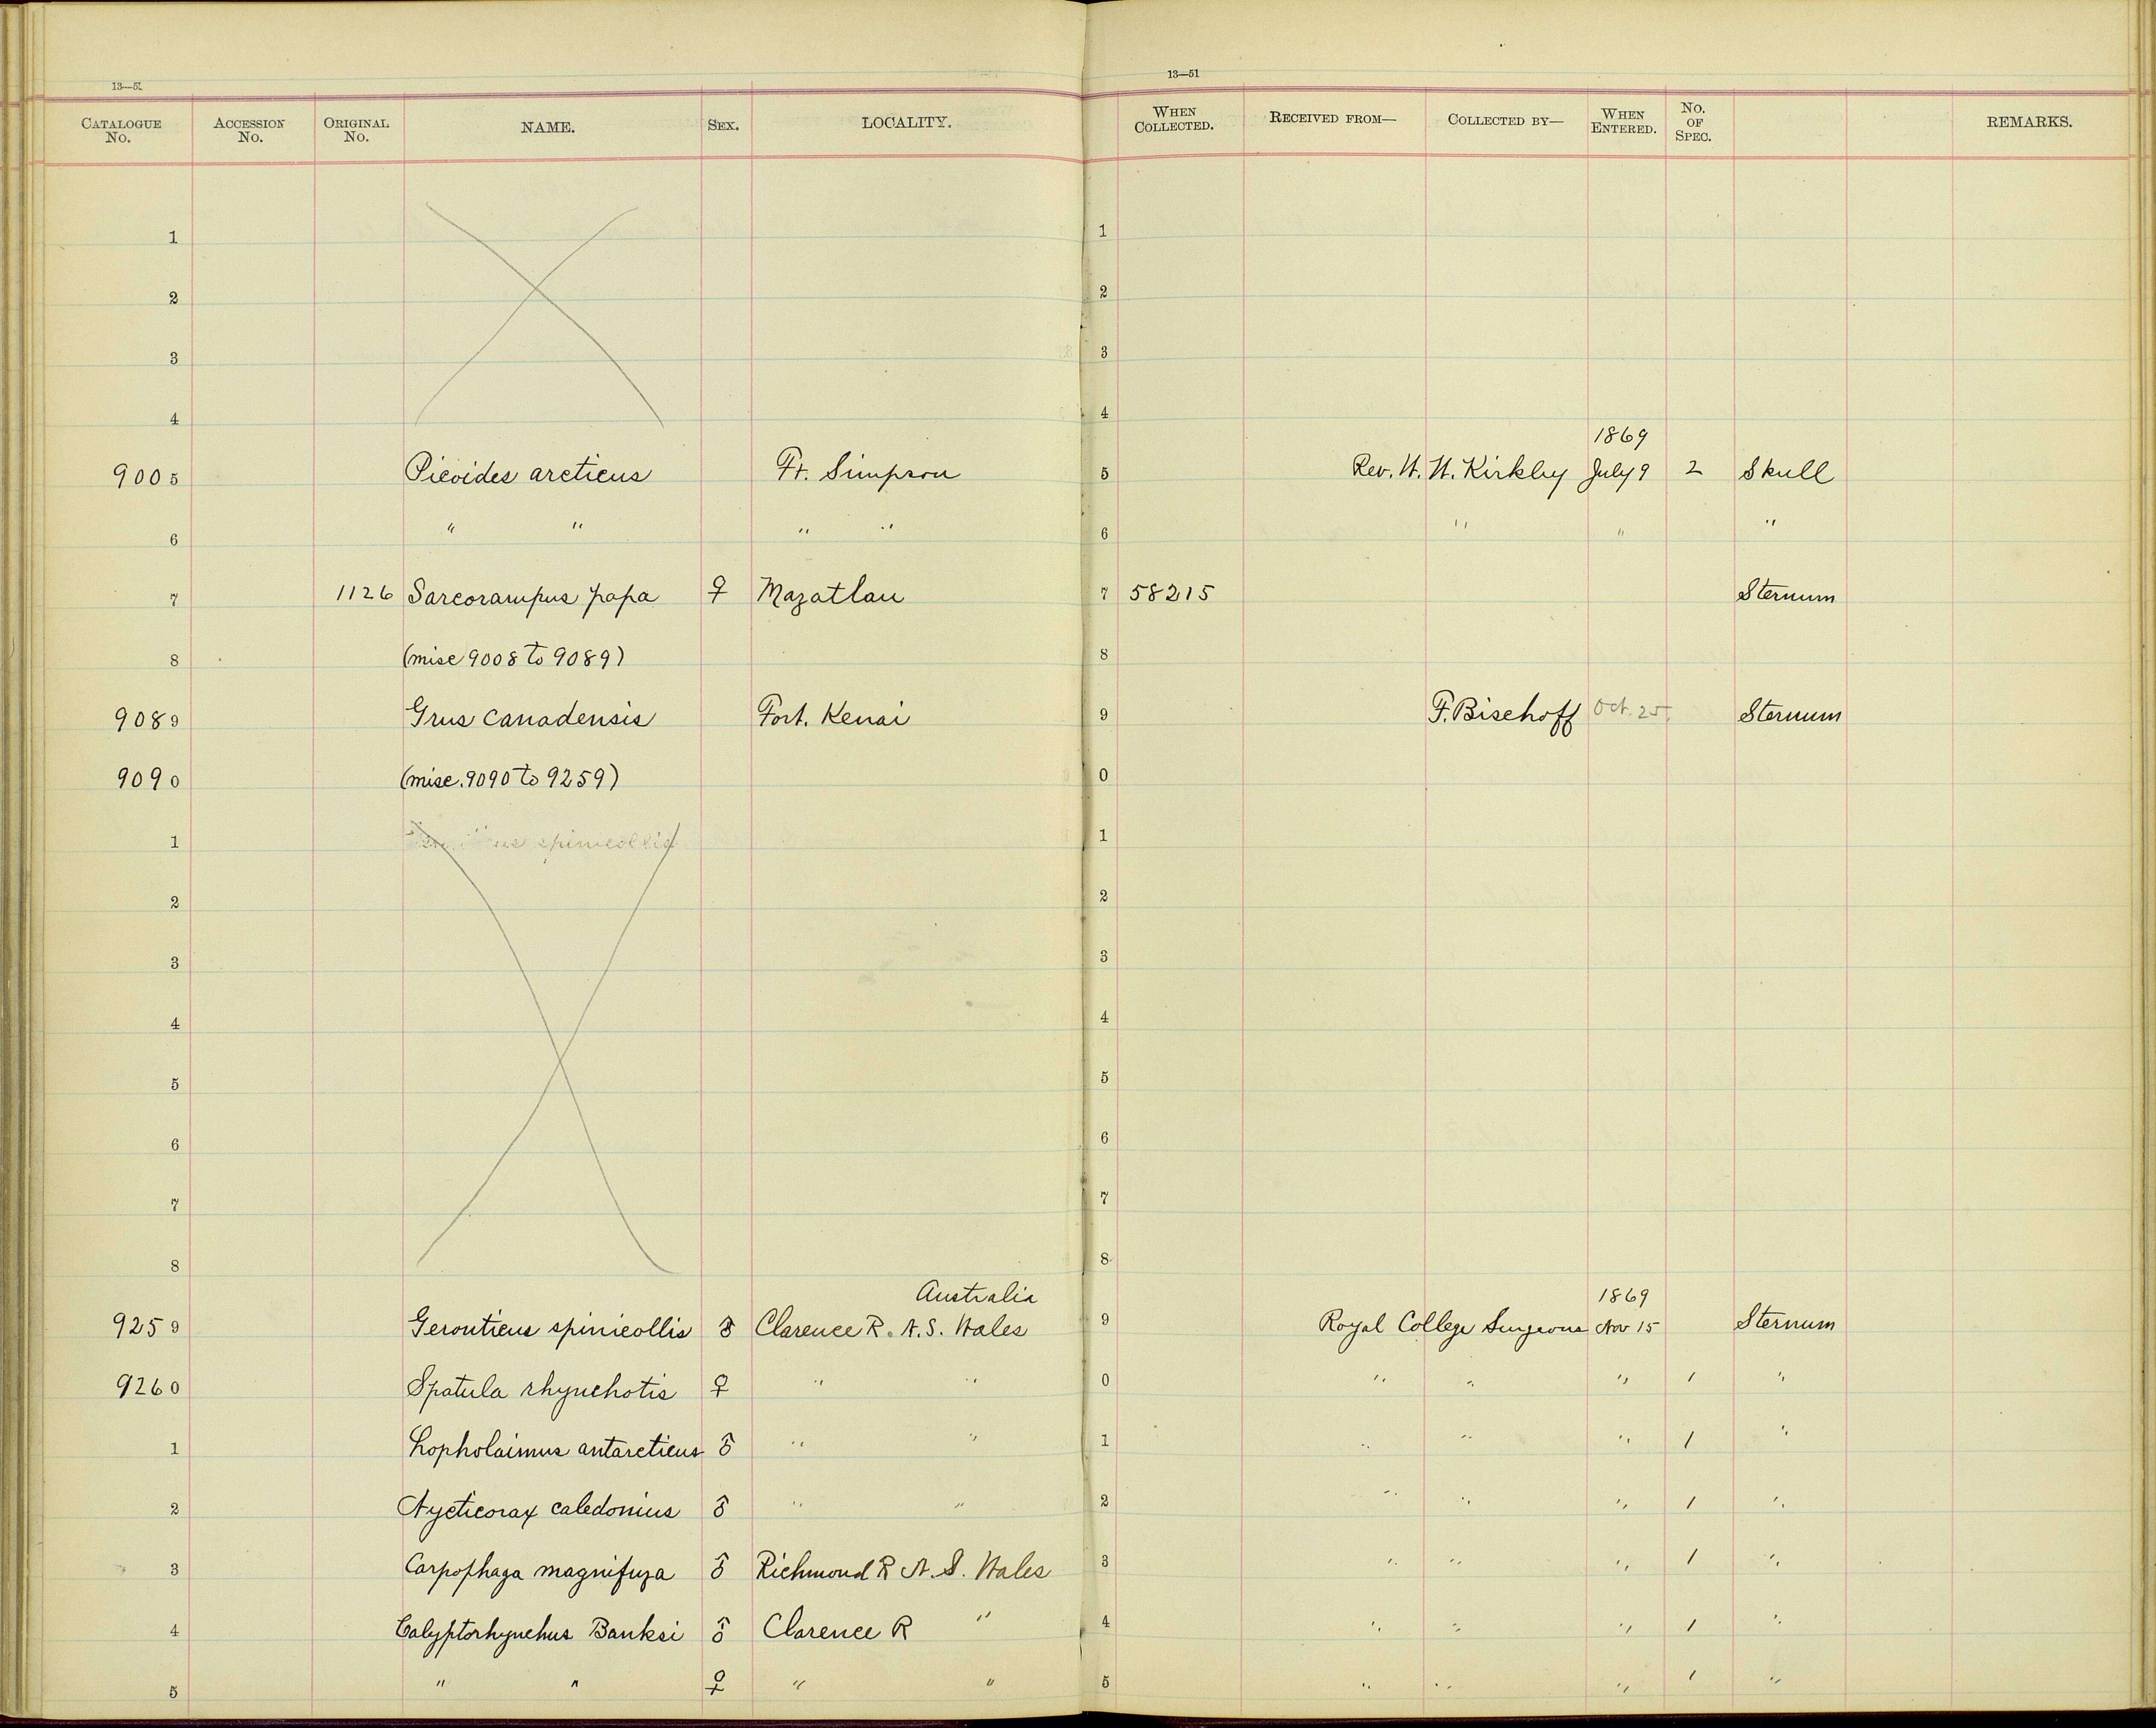 13—51
13—51
CATALOGUE No. ACCESSION No. ORIGINAL No. NAME. SEX. LOCALITY. WHEN COLLECTED. RECEIVED FROM— COLLECTED BY— WHEN ENTERED. No. OF SPEC. REMARKS.
1 1
2 2
3 3
4 4
1869
9005 Picoides arcticus Ft. Simpson 5 Rev. W. W. Kirkby July 9 2 Skull
6 " " " " 6 " " "
7 1126 Sarcorampus papa ♀ Mazatlan 7 58215 Sternum
8 (misc 9008 to 9089) 8
9089 Grus canadensis Fort. Kenai 9 F. Bischoff Oct. 25. Sternum
9090 (misc. 9090 to 9259) 0
1 spinicollis 1
2 2
3 3
4 4
5 5
6 6
7 7
8 8
Australia 1869
9259 Geronticus spinicollis ♂ Clarence R. N. S. Wales 9 Royal College Surgeons Nov 15 Sternum
9260 Spatula rhynchotis ♀ " " 0 " " " 1 "
1 Lopholaimus antarcticus ♂ " " 1 " " " 1 "
2 Nycticorax caledonius ♂ " " 2 " " " 1 "
3 Carpophaga magnifuza ♂ Richmond R N. S. Wales 3 " " " 1 "
4 Calyptorhynchus Banksi ♂ Clarence R " 4 " " " 1 "
5 " " ♀ " " 5 " " " 1 "